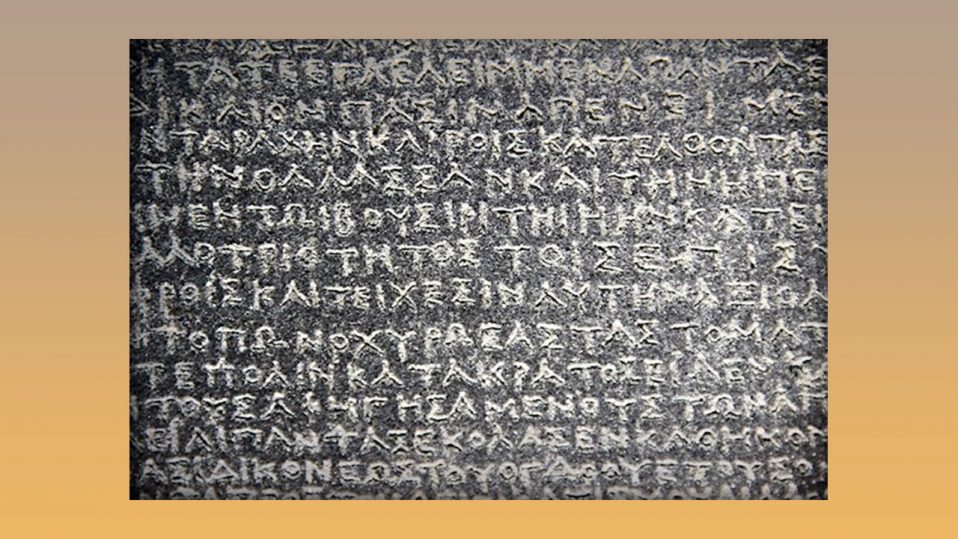 ΤΑΤΕΕΓΛΕΛΕΙΜΜΕΝΑΠΑΝΤΑΕ
ΔΙΚΑΙΟΝΠΑΣΙΝΑΠΕΝΕΙΜΕΝ
ΝΤΑΡΑΧΗΝΚΑΙΡΟΙΣΚΑΤΕΛΘΟΝΤΑΣ
ΤΗΝΘΑΛΑΣΣΑΝΚΑΙΤΗΝΗΠΕ
ΕΝΤΩΙΒΟΥΣΙΡΙΤΗΙΗΗΝΚΑΤΕΙ
ΑΛΛΟΤΡΙΟΤΗΤΟΣΤΟΙΣΕΠΙΣ
ΡΟΙΣΚΑΙΤΕΙΧΕΣΙΝΑΥΤΗΝΑΞΙΟΛ
ΤΟΠΩΝΟΧΥΡΩΣΑΣΤΑΣΤΟΜΑΤ
ΤΕΠΟΛΙΝΚΑΤΑΚΡΑΤΟΣΕΙΛΕΝ
ΤΟΥΣΑΦΗΓΗΣΑΜΕΝΟΥΣΤΩΝΑΠ
ΠΑΝΤΑΣΕΚΟΛΑΣΕΝΚΑΘΗΚΟΝ
ΑΣΙΛΙΚΟΝΕΩΣΤΟΥΟΓΔΟΟΥΕΤΟΥΣΟ